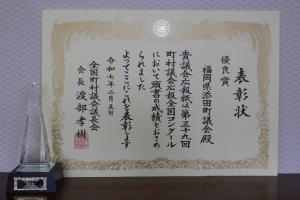 表彰状
優良賞
福岡県添田町議会殿
貴議会広報紙は第三十九回
町村議会広報全国コンクール
において頭書の成績をおさめ
られました
よってここにこれを表彰します
令和七年二月五日
全国町村議会議長会
会長 渡部孝樹